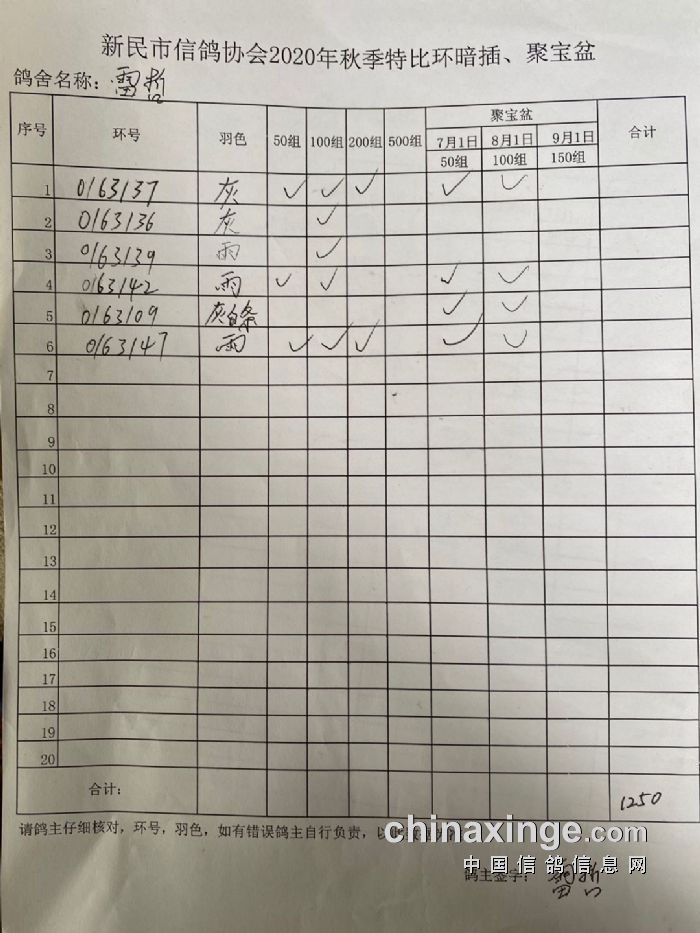 新民市信鸽协会2020年秋季特比环暗插、聚宝盆
鸽舍名称：雷哲
序号 环号 羽色 50组 100组 200组 500组 聚宝盆 合计
7月1日 8月1日 9月1日
50组 100组 150组
1 0163137 灰 ✓ ✓ ✓ ✓ ✓
2 0163136 灰 ✓
3 0163139 雨 ✓
4 0163142 雨 ✓ ✓ ✓ ✓
5 0163109 灰白条 ✓ ✓
6 0163147 雨 ✓ ✓ ✓ ✓ ✓
7
8
9
10
11
12
13
14
15
16
17
18
19
20
合计： 1250
请鸽主仔细核对，环号，羽色，如有错误鸽主自行负责，以此
chinaxinge.com
中国信鸽信息网
鸽主签字：雷哲